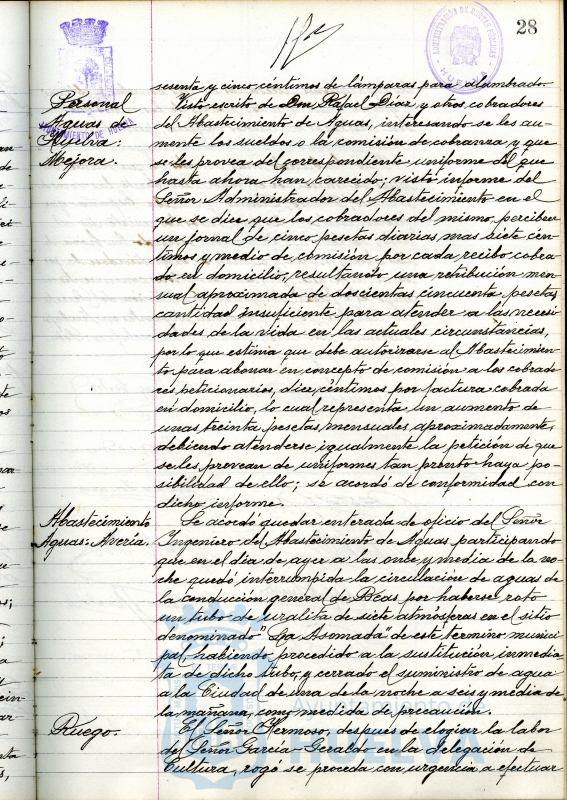 28
ADMINISTRACIÓN DE RENTAS PÚBLICAS
HUELVA
AYUNTAMIENTO DE HUELVA
sesenta y cinco céntimos de lámparas para alumbrado.
Personal
Aguas de
Huelva:
Mejora.
Visto escrito de Don Rafael Díaz, y otros cobradores
del Abastecimiento de Aguas, interesando se les au-
mente los sueldos o la comisión de cobranza y que
se les provea del correspondiente uniforme del que
hasta ahora han carecido; visto informe del
Señor Administrador del Abastecimiento en el
que se dice que los cobradores del mismo, perciben
un jornal de cinco pesetas diarias, mas siete cén-
timos y medio de comisión por cada recibo cobra-
do en domicilio; resultando una retribución men-
sual aproximada de doscientas cincuenta pesetas
cantidad insuficiente para atender a las necesi-
dades de la vida en las actuales circunstancias,
por lo que estima que debe autorizarse al Abastecimien-
to para abonar en concepto de comisión a los cobrado-
res peticionarios, diez céntimos por factura cobrada
en domicilio, lo cual representa un aumento de
unas treinta pesetas, mensuales aproximadamente,
debiendo atenderse igualmente la petición de que
se les provean de uniformes tan pronto haya po-
sibilidad de ello; se acordó de conformidad con
dicho informe.
Abastecimiento
Aguas: Avería.
Se acordó quedar enterada de oficio del Señor
Ingeniero del Abastecimiento de Aguas participando
que en el día de ayer a las once y media de la no-
che quedó interrumpida la circulación de aguas de
la conducción general de Beas por haberse roto
un tubo de uralita de siete atmósferas en el sitio
denominado "La Asomada" de este termino munici-
pal, habiendo procedido a la sustitución inmedia-
ta de dicho tubo, y cerrado el suministro de agua
a la Ciudad de una de la noche a seis y media de
la mañana, como medida de precaución.
Ruego.
El Señor Hermoso, después de elogiar la labor
del Señor García-Geraldo en la delegación de
Cultura, rogó se proceda con urgencia a efectuar
Ayuntamiento de
HUELVA